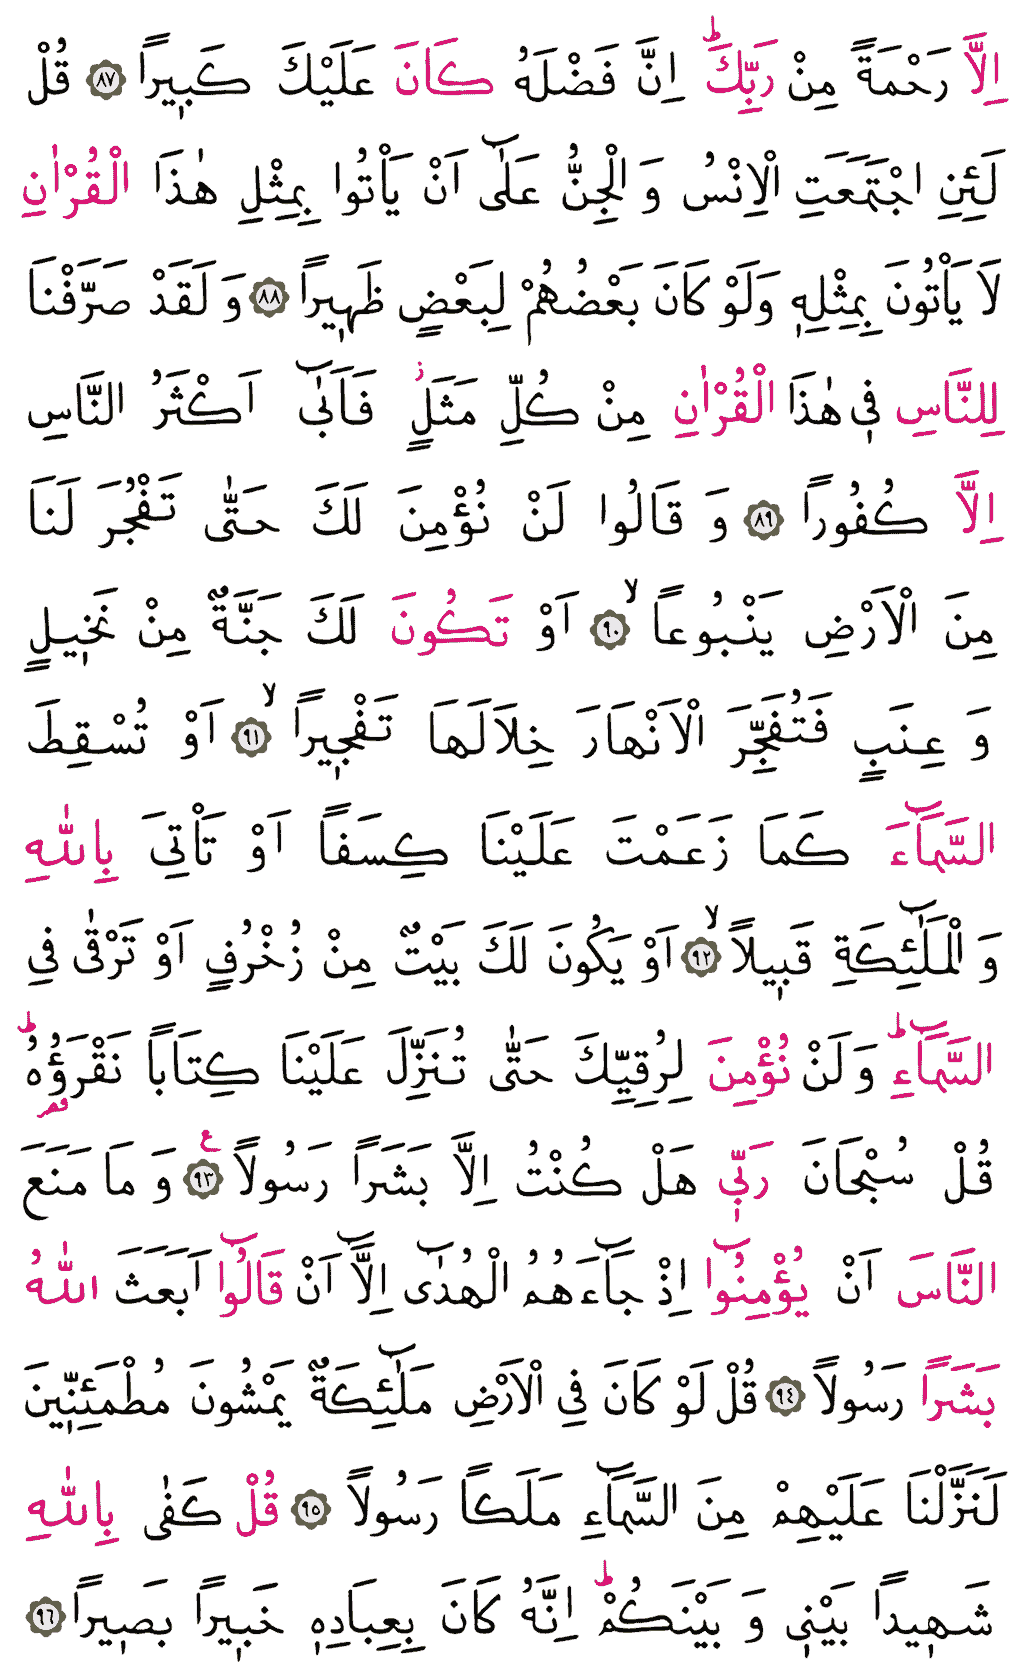 اِلَّا رَحْمَةً مِنْ رَبِّكَۜ اِنَّ فَضْلَهُ كَانَ عَلَيْكَ كَبٖيراً ﴿٨٧﴾ قُلْ
لَئِنِ اجْتَمَعَتِ الْاِنْسُ وَ الْجِنُّ عَلٰٓى اَنْ يَأْتُوا بِمِثْلِ هٰذَا الْقُرْاٰنِ
لَا يَأْتُونَ بِمِثْلِهٖ وَلَوْ كَانَ بَعْضُهُمْ لِبَعْضٍ ظَهٖيراً ﴿٨٨﴾ وَ لَقَدْ صَرَّفْنَا
لِلنَّاسِ فٖي هٰذَا الْقُرْاٰنِ مِنْ كُلِّ مَثَلٍؗ فَاَبٰٓى اَكْثَرُ النَّاسِ
اِلَّا كُفُوراً ﴿٨٩﴾ وَ قَالُوا لَنْ نُؤْمِنَ لَكَ حَتّٰى تَفْجُرَ لَنَا
مِنَ الْاَرْضِ يَنْبُوعاًۙ ﴿٩٠﴾ اَوْ تَكُونَ لَكَ جَنَّةٌ مِنْ نَخٖيلٍ
وَ عِنَبٍ فَتُفَجِّرَ الْاَنْهَارَ خِلَالَهَا تَفْجٖيراًۙ ﴿٩١﴾ اَوْ تُسْقِطَ
السَّمَٓاءَ كَمَا زَعَمْتَ عَلَيْنَا كِسَفاً اَوْ تَأْتِيَ بِاللّٰهِ
وَ الْمَلٰٓئِكَةِ قَبٖيلاًۙ ﴿٩٢﴾ اَوْ يَكُونَ لَكَ بَيْتٌ مِنْ زُخْرُفٍ اَوْ تَرْقٰى فِي
السَّمَٓاءِۜ وَ لَنْ نُؤْمِنَ لِرُقِيِّكَ حَتّٰى تُنَزِّلَ عَلَيْنَا كِتَاباً نَقْرَؤُهُۜ
قُلْ سُبْحَانَ رَبّٖي هَلْ كُنْتُ اِلَّا بَشَراً رَسُولاً ﴿٩٣﴾ ع وَ مَا مَنَعَ
النَّاسَ اَنْ يُؤْمِنُٓوا اِذْ جَٓاءَهُمُ الْهُدٰٓى اِلَّٓا اَنْ قَالُٓوا اَبَعَثَ اللّٰهُ
بَشَراً رَسُولاً ﴿٩٤﴾ قُلْ لَوْ كَانَ فِي الْاَرْضِ مَلٰٓئِكَةٌ يَمْشُونَ مُطْمَئِنّٖينَ
لَنَزَّلْنَا عَلَيْهِمْ مِنَ السَّمَٓاءِ مَلَكاً رَسُولاً ﴿٩٥﴾ قُلْ كَفٰى بِاللّٰهِ
شَهٖيداً بَيْنٖي وَ بَيْنَكُمْۜ اِنَّهُ كَانَ بِعِبَادِهٖ خَبٖيراً بَصٖيراً ﴿٩٦﴾